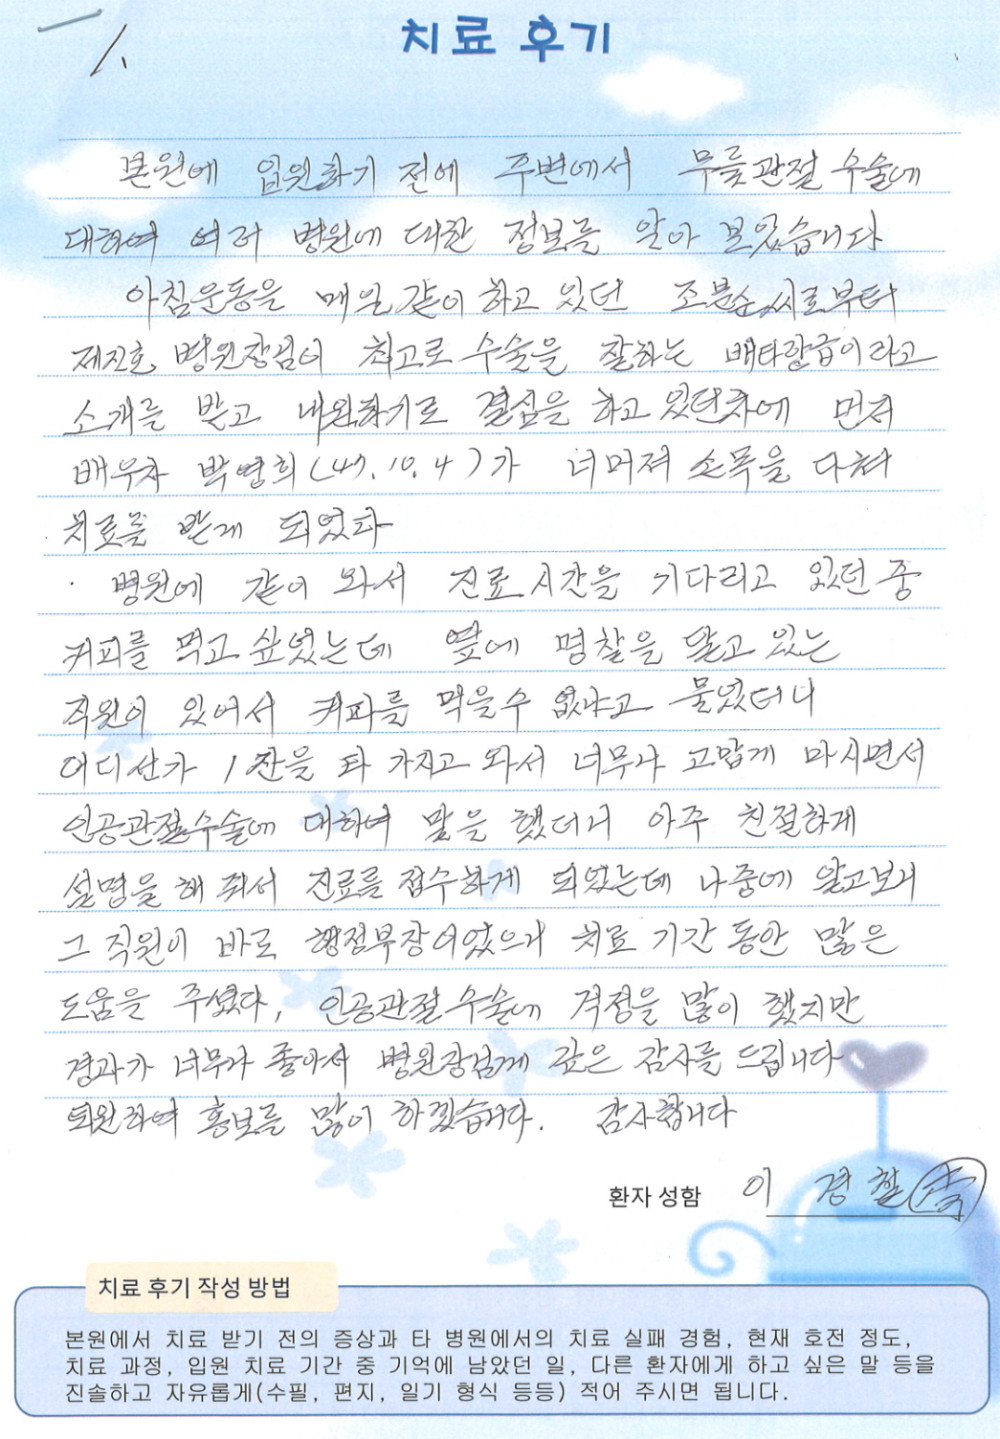 1.
치료 후기
본원에 입원하기 전에 주변에서 무릎관절 수술에
대하여 여러 병원에 대한 정보를 알아 보았습니다
아침운동을 매일 같이 하고 있던 조분순씨로부터
제진호 병원장님이 최고로 수술을 잘하는 배타랑급이라고
소개를 받고 내원하기로 결심을 하고 있던차에 먼저
배우자 박영희(47.10.4)가 너머져 손목을 다쳐
치료를 받게 되었다
병원에 같이 와서 진료 시간을 기다리고 있던 중
커피를 먹고 싶었는데 옆에 명찰을 달고 있는
직원이 있어서 커피를 먹을수 없냐고 물었더니
어디선가 1잔을 타 가지고 와서 너무나 고맙게 마시면서
인공관절수술에 대하여 말을 했더니 아주 친절하게
설명을 해 줘서 진료를 접수하게 되었는데 나중에 알고보니
그 직원이 바로 행정부장이었으니 치료 기간 동안 많은
도움을 주셨다, 인공관절 수술에 걱정을 많이 했지만
경과가 너무나 좋아서 병원장님게 깊은 감사를 드립니다
퇴원하여 홍보를 많이 하겠습니다. 감사합니다
환자 성함 이 경철
치료 후기 작성 방법
본원에서 치료 받기 전의 증상과 타 병원에서의 치료 실패 경험, 현재 호전 정도,
치료 과정, 입원 치료 기간 중 기억에 남았던 일, 다른 환자에게 하고 싶은 말 등을
진솔하고 자유롭게(수필, 편지, 일기 형식 등등) 적어 주시면 됩니다.